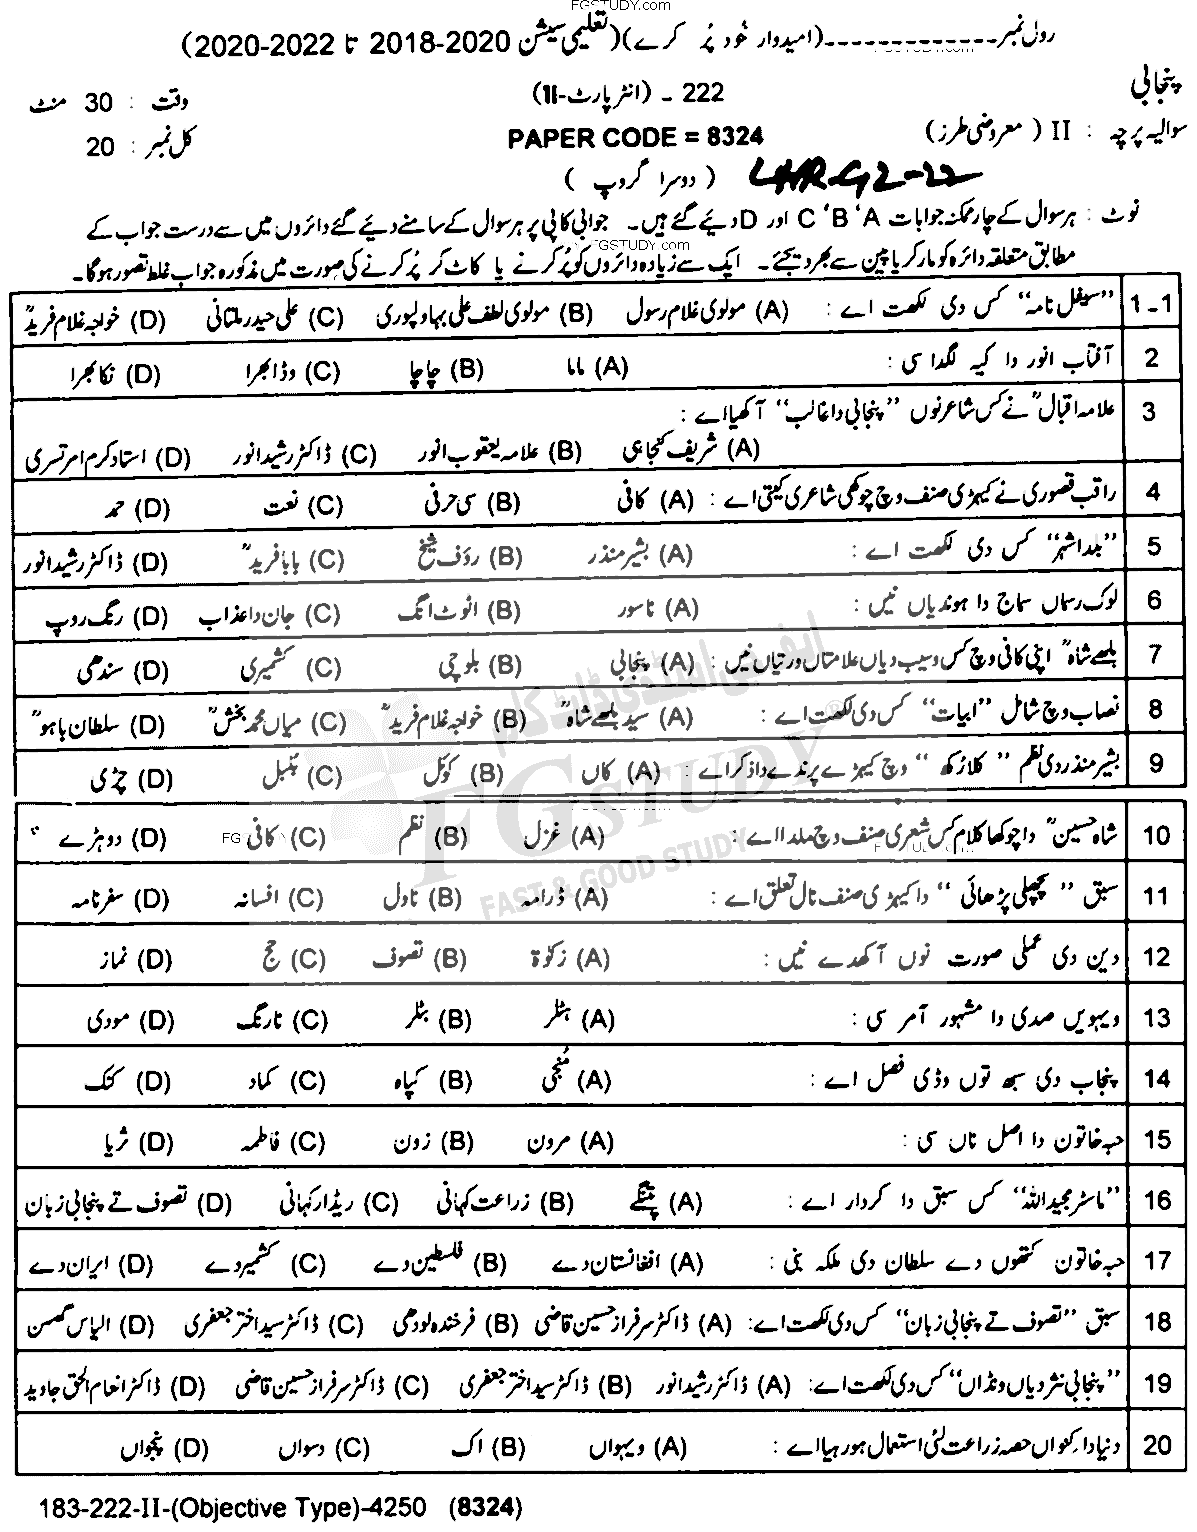 FGSTUDY.com
رول نمبر۔۔۔۔۔۔۔۔۔۔۔۔۔(امیدوار خود پُر کرے)(تعلیمی سیشن 2020-2018 تا 2022-2020)
پنجابی 222 ۔ (انٹر پارٹ-II) وقت : 30 منٹ
سوالیہ پرچہ : II (معروضی طرز) PAPER CODE = 8324 کل نمبر : 20
(دوسرا گروپ) LHR-G2-22
نوٹ : ہر سوال کے چار ممکنہ جوابات A، B، C اور D دیئے گئے ہیں۔ جوابی کاپی پر ہر سوال کے سامنے دیئے گئے دائروں میں سے درست جواب کے
مطابق متعلقہ دائرہ کو مارکر یا پین سے بھر دیجئے۔ ایک سے زیادہ دائروں کو پُر کرنے یا کاٹ کر پُر کرنے کی صورت میں مذکورہ جواب غلط تصور ہوگا۔
1-1 "سیفل نامہ" کس دی لکھت اے : (A) مولوی غلام رسول (B) مولوی لطف علی بہاولپوری (C) علی حیدر ملتانی (D) خواجہ غلام فریدؒ
2 آفتاب انور دا کیہ لگدا سی : (A) ماما (B) چاچا (C) وڈا بھرا (D) نکا بھرا
3 علامہ اقبالؒ نے کس شاعر نوں "پنجابی دا غالب" آکھیا اے :
(A) شریف کنجاہی (B) علامہ یعقوب انور (C) ڈاکٹر رشید انور (D) استاد کرم امرتسری
4 راقب قصوری نے کیہڑی صنف وچ چوکھی شاعری کیتی اے : (A) کافی (B) سی حرفی (C) نعت (D) حمد
5 "بلدا شہر" کس دی لکھت اے : (A) بشیر منذر (B) رؤف شیخ (C) بابا فریدؒ (D) ڈاکٹر رشید انور
6 لوک رسماں سماج دا ہوندیاں نیں : (A) ناسور (B) انوٹ انگ (C) جان دا عذاب (D) رنگ روپ
7 بلھے شاہؒ اپنی کافی وچ کس وسیب دیاں علامتاں ورتیاں نیں : (A) پنجابی (B) بلوچی (C) کشمیری (D) سندھی
8 نصاب وچ شامل "ابیات" کس دی لکھت اے : (A) سید بلھے شاہؒ (B) خواجہ غلام فریدؒ (C) میاں محمد بخشؒ (D) سلطان باہوؒ
9 بشیر منذر دی نظم "کلا رکھ" وچ کیہڑے پرندے دا ذکر اے : (A) کاں (B) کوئل (C) بلبل (D) چڑی
10 شاہ حسینؒ دا چوکھا کلام کس شعری صنف وچ ملدا اے : (A) غزل (B) نظم (C) کافی (D) دوہڑے
11 سبق "پچھلی پڑھائی" دا کیہڑی صنف نال تعلق اے : (A) ڈرامہ (B) ناول (C) افسانہ (D) سفرنامہ
12 دین دی عملی صورت نوں آکھدے نیں : (A) زکوٰۃ (B) تصوف (C) حج (D) نماز
13 ویہویں صدی دا مشہور آمر سی : (A) ہٹلر (B) بٹلر (C) نارنگ (D) مودی
14 پنجاب دی سبھ توں وڈی فصل اے : (A) مُنجی (B) کپاہ (C) کماد (D) کنک
15 حبہ خاتون دا اصل ناں سی : (A) مرون (B) زون (C) فاطمہ (D) ثریا
16 "ماسٹر مجید اللہ" کس سبق دا کردار اے : (A) پتنگے (B) زراعت کہانی (C) ریڈار کہانی (D) تصوف تے پنجابی زبان
17 حبہ خاتون کتھوں دے سلطان دی ملکہ بنی : (A) افغانستان دے (B) فلسطین دے (C) کشمیر دے (D) ایران دے
18 سبق "تصوف تے پنجابی زبان" کس دی لکھت اے: (A) ڈاکٹر سرفراز حسین قاضی (B) فرخندہ لودھی (C) ڈاکٹر سید اختر جعفری (D) الیاس گھمن
19 "پنجابی نثر دیاں ونڈاں" کس دی لکھت اے: (A) ڈاکٹر رشید انور (B) ڈاکٹر سید اختر جعفری (C) ڈاکٹر سرفراز حسین قاضی (D) ڈاکٹر انعام الحق جاوید
20 دنیا دا کِنواں حصہ زراعت لئی استعمال ہو رہیا اے : (A) ویہواں (B) اک (C) دسواں (D) پنجواں
183-222-II-(Objective Type)-4250 (8324)
FGSTUDY
FAST & GOOD STUDY